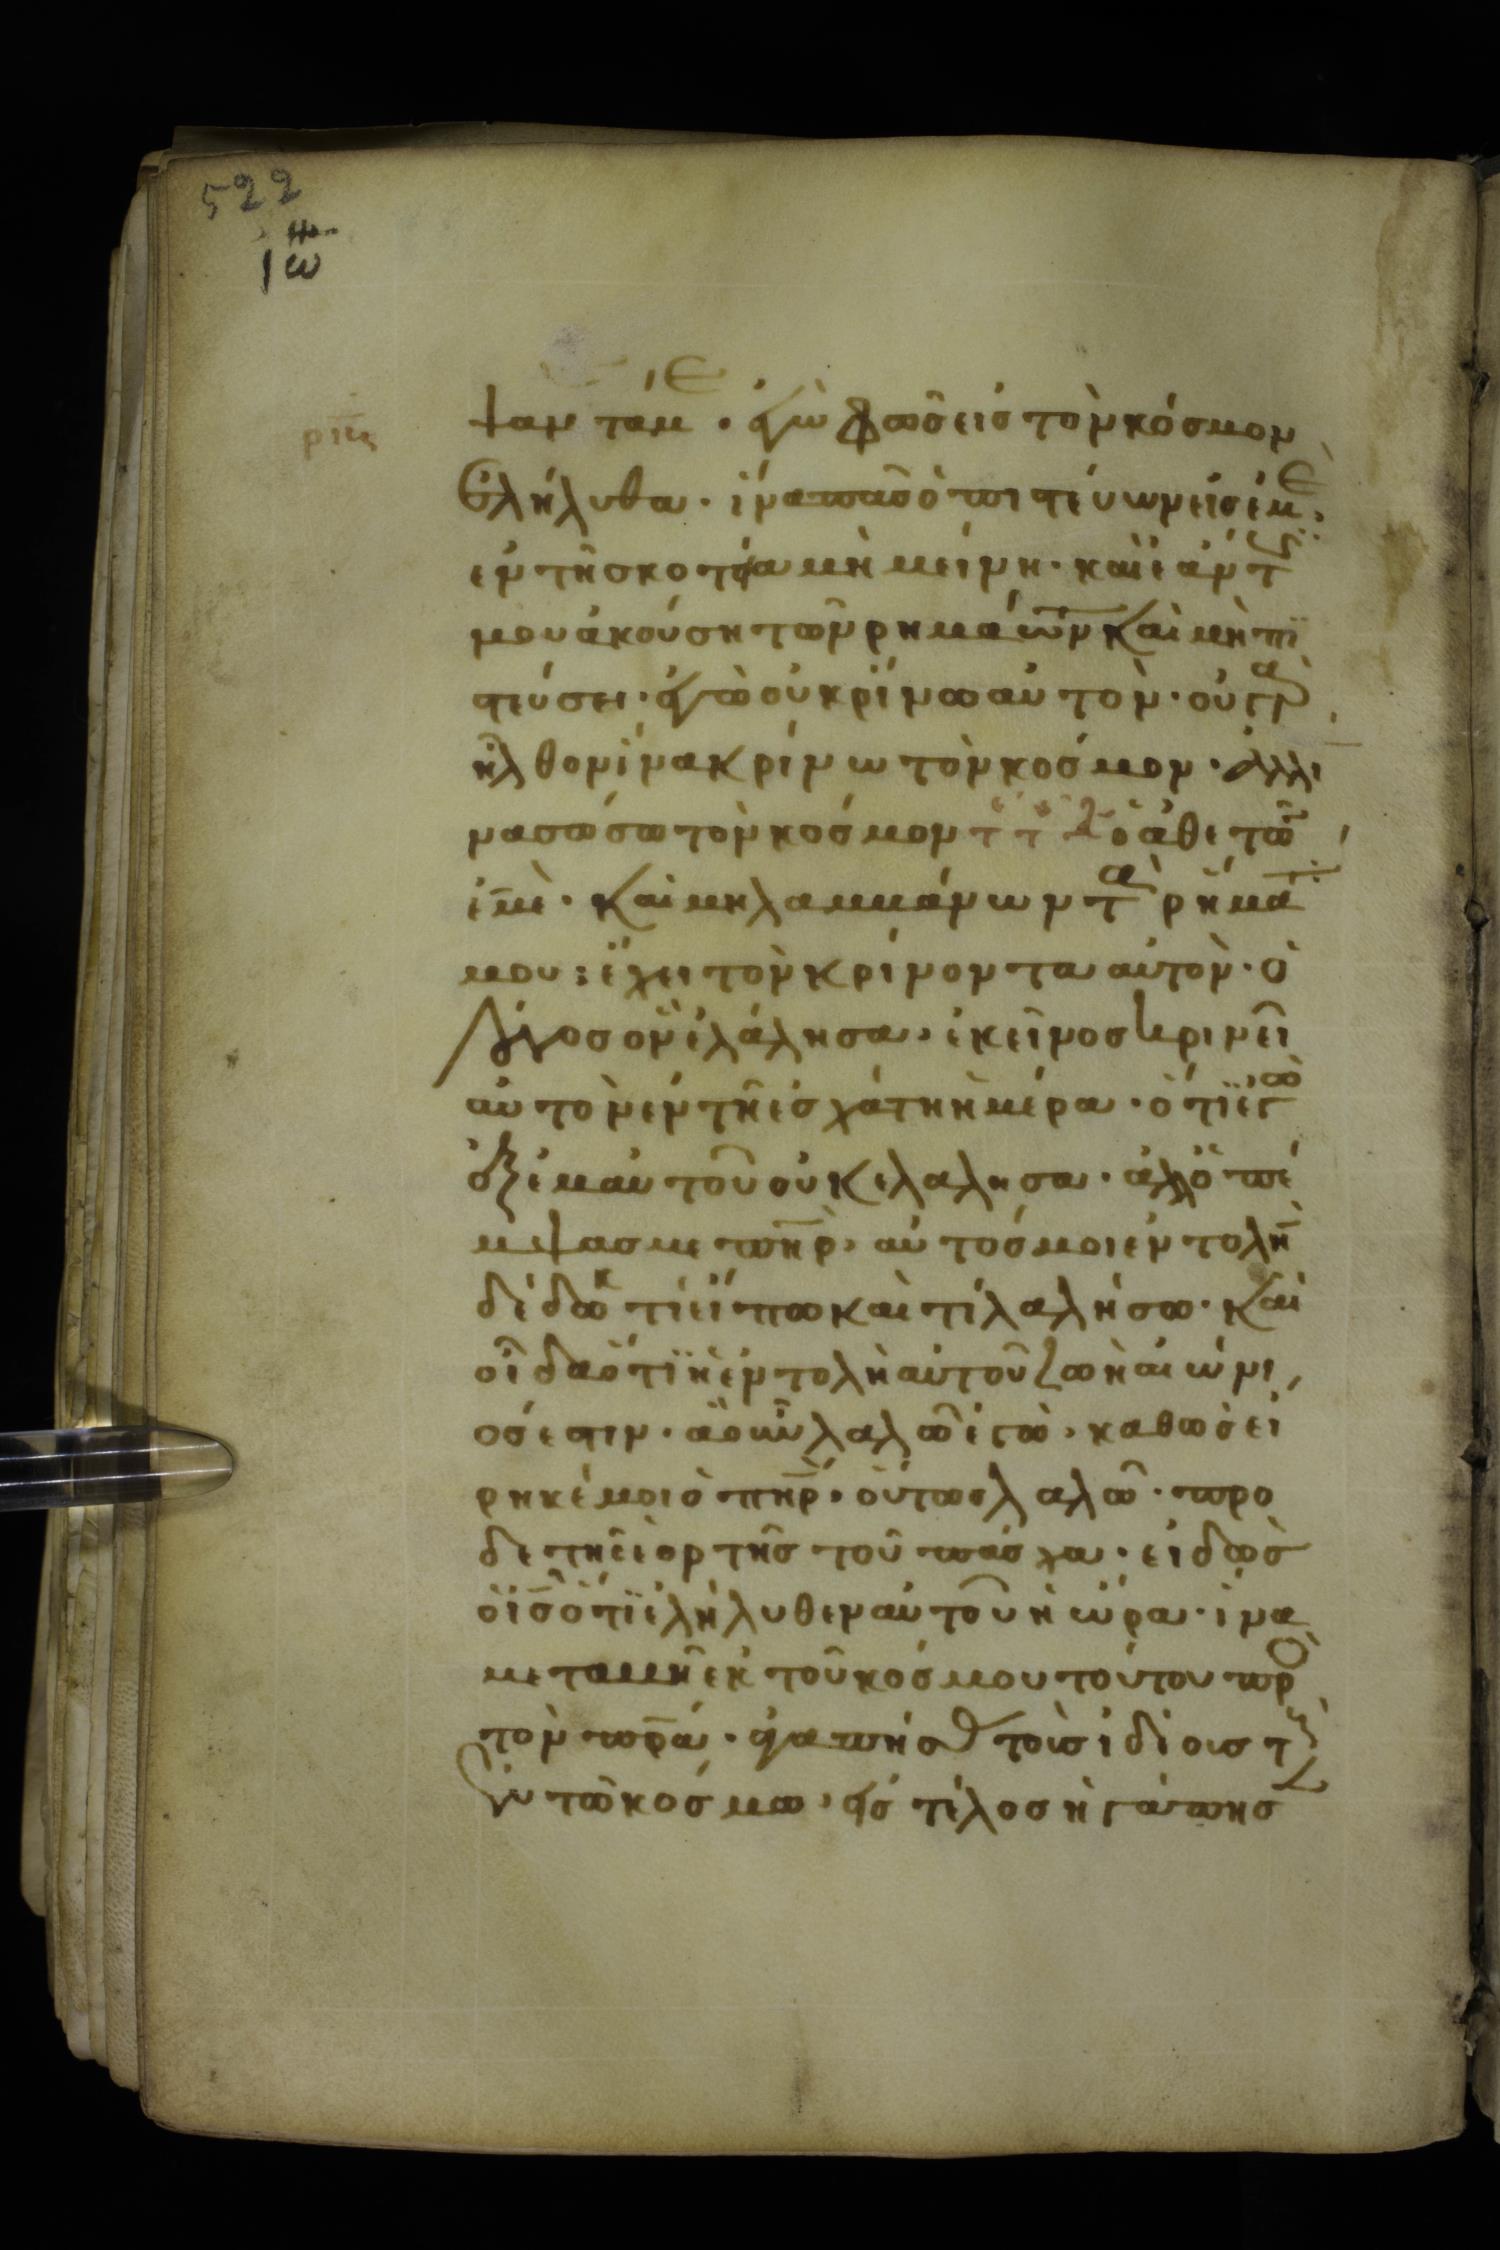 522
ιω
ριϛ
ψαντάμε· ἐγὼ φῶς εἰς τὸν κόσμον
ἐλήλυθα· ἵνα πᾶς ὁ πιστεύων εἰς ἐμέ,
ἐν τῆ σκοτία μὴ μείνη· καὶ ἐάν τίς
μου ἀκούση τῶν ρημάτων καὶ μὴ πι
στεύσει· ἐγὼ οὐ κρίνω αὐτόν· οὐ γὰρ
ἦλθον ἵνα κρίνω τὸν κόσμον· ἀλλ' ἵ
να σώσω τὸν κόσμον ὁ ἀθετῶν
ἐμὲ· καὶ μὴ λαμμάνων τὰ ρήματά
μου: ἔχει τὸν κρίνοντα αὐτόν· ὁ
λόγος ὃν ἐλάλησα, ἐκεῖνος κρινεῖ
αὐτὸν ἐν τῆ ἐσχάτη ἡμέρα· ὅτι ἐγὼ
ἐξ ἐμαυτοῦ οὐκ ἐλάλησα· ἀλλ' ὁ πέ
μψας με πηρ, αὐτός μοι ἐντολὴν
δέδωκ τί εἴπω καὶ τί λαλήσω· καὶ
οἶδα ὅτι ἡ ἐντολὴ αὐτοῦ ζωὴ αἰώνι,
ός ἐστιν· ἃ οὖν λαλῶ ἐγὼ, καθὼς εἴ
ρηκέ μοι ὁ πηρ, οὕτως λαλῶ· προ
δὲ τῆς ἑορτῆς τοῦ πάσχα· εἰδὼς
ὁ ις ὅτι ἐλήλυθεν αὐτοῦ ἡ ὥρα· ἵνα
μεταμῆ ἐκ τοῦ κόσμου τούτου πρὸ
τὸν πρα· ἀγαπήσας τοὺς ἰδίους τοὺς
ἐν τῶ κόσμω, εἰς τέλος ἠγάπησ